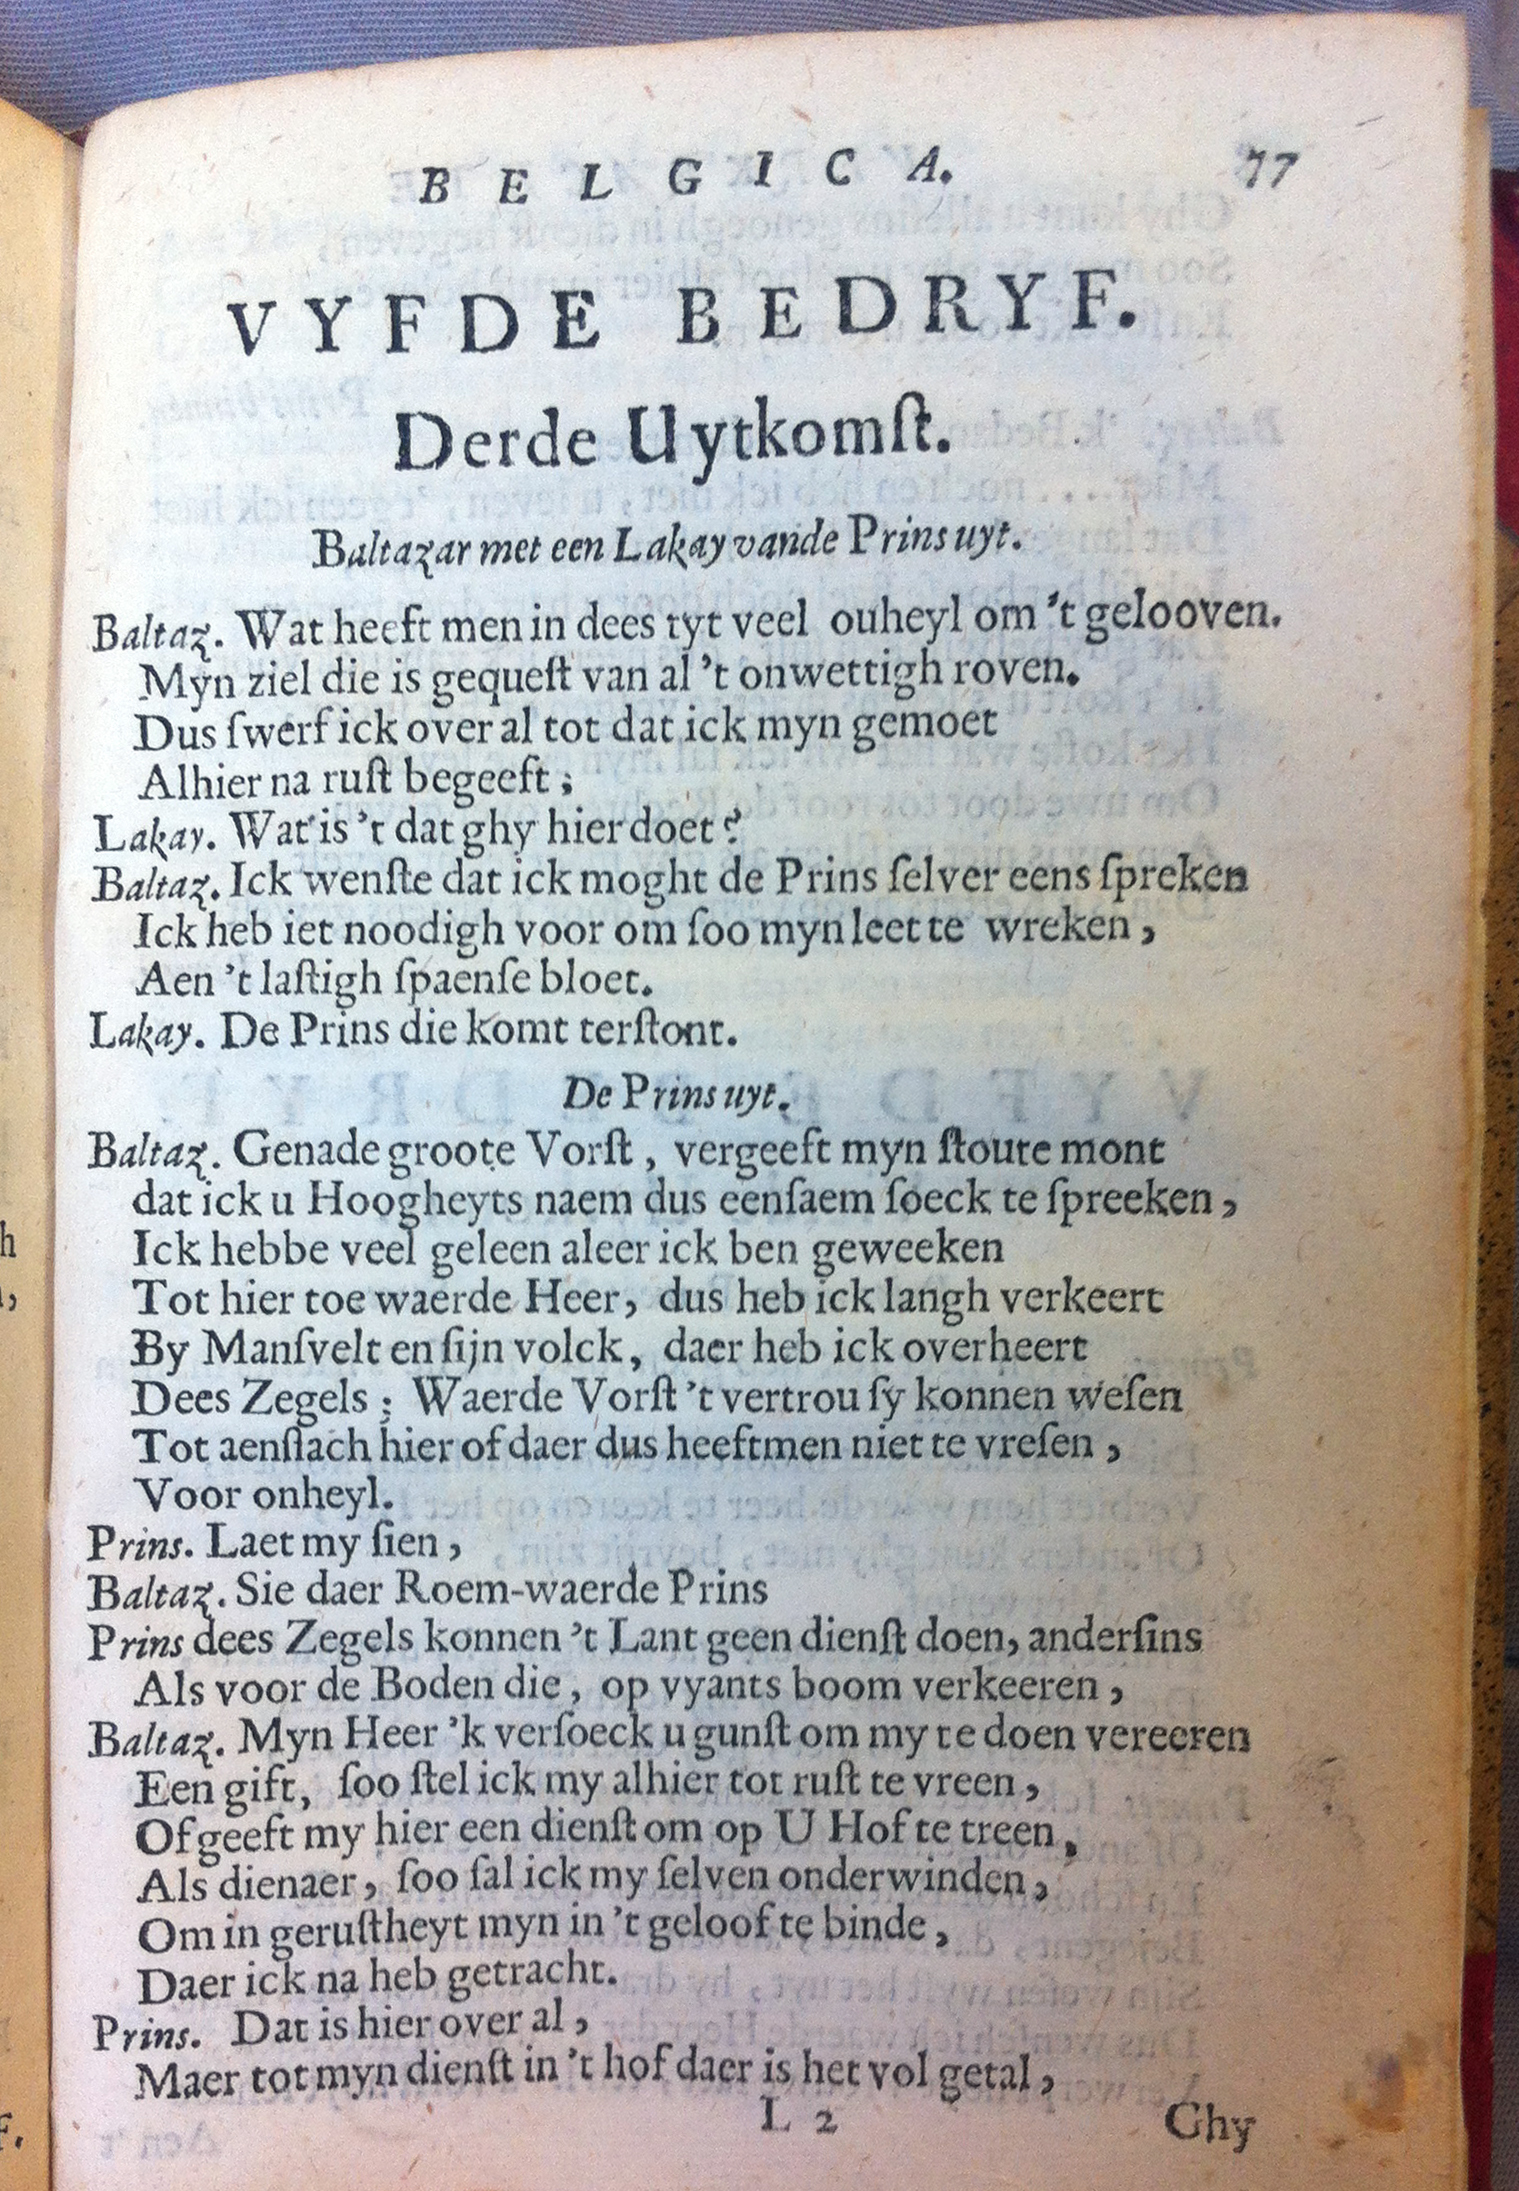 BELGICA. 77
VYFDE BEDRYF.
Derde Uytkomſt.
Baltazar met een Lakay vande Prins uyt.
Baltaz. Wat heeft men in dees tyt veel ouheyl om 't gelooven.
Myn ziel die is gequeſt van al 't onwettigh roven.
Dus ſwerf ick over al tot dat ick myn gemoet
Alhier na ruſt begeeft;
Lakay. Wat is 't dat ghy hier doet?
Baltaz. Ick wenſte dat ick moght de Prins ſelver eens ſpreken
Ick heb iet noodigh voor om ſoo myn leet te wreken,
Aen 't laſtigh ſpaenſe bloet.
Lakay. De Prins die komt terſtont.
De Prins uyt.
Baltaz. Genade groote Vorſt, vergeeft myn ſtoute mont
dat ick u Hoogheyts naem dus eenſaem ſoeck te ſpreeken,
Ick hebbe veel geleen aleer ick ben geweeken
Tot hier toe waerde Heer, dus heb ick langh verkeert
By Manſvelt en ſijn volck, daer heb ick overheert
Dees Zegels; Waerde Vorſt 't vertrou ſy konnen weſen
Tot aenſlach hier of daer dus heeftmen niet te vreſen,
Voor onheyl.
Prins. Laet my ſien,
Baltaz. Sie daer Roem-waerde Prins
Prins dees Zegels konnen 't Lant geen dienſt doen, anderſins
Als voor de Boden die, op vyants boom verkeeren,
Baltaz. Myn Heer 'k verſoeck u gunſt om my te doen vereeren
Een gift, ſoo ſtel ick my alhier tot ruſt te vreen,
Of geeft my hier een dienſt om op U Hof te treen,
Als dienaer, ſoo ſal ick my ſelven onderwinden,
Om in geruſtheyt myn in 't geloof te binde,
Daer ick na heb getracht.
Prins. Dat is hier over al,
Maer tot myn dienſt in 't hof daer is het vol getal,
L 2 Ghy